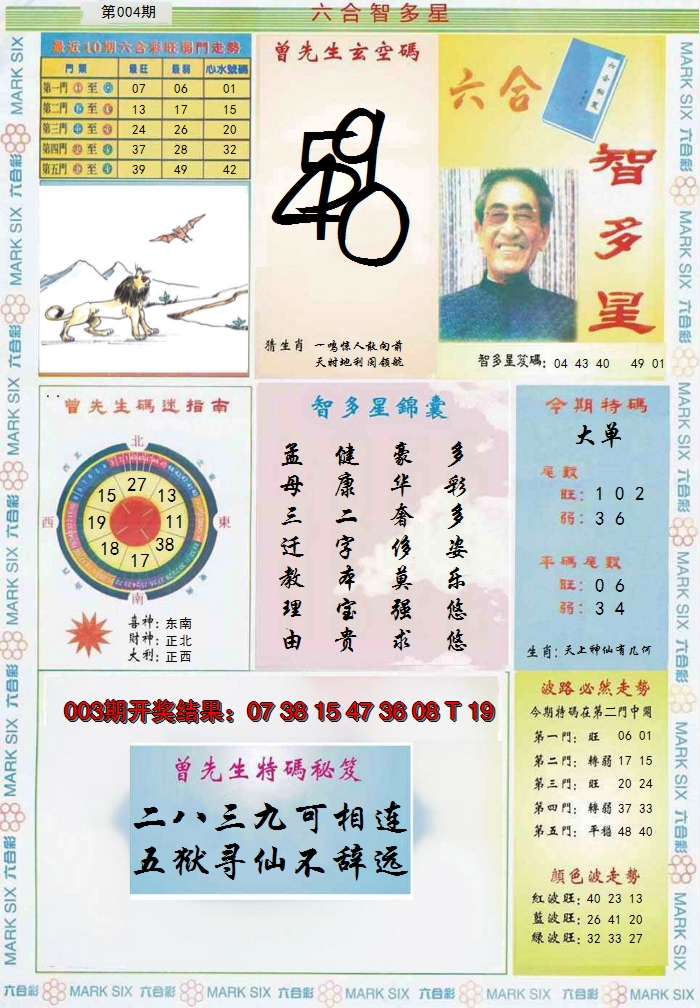 第004期
六合智多星
最近10期六合彩旺弱門走勢
門類 最旺 最弱 心水號碼
第一門 至 07 06 01
第二門 至 13 17 15
第三門 至 24 26 20
第四門 至 37 28 32
第五門 至 39 49 42
曾先生玄空碼
猜生肖 一鸣惊人敢向前
天时地利阅领航
六合
智多星
智多星笈碼: 04 43 40 49 01
曾先生碼迷指南
北
27
15 13
西 19 11 東
18 38
17
南
喜神: 东南
財神: 正北
大利: 正西
智多星錦囊
孟母三迁教理由
健康二字本宝贵
豪华奢侈莫强求
多彩多姿乐悠悠
今期特碼
大单
尾数
旺: 1 0 2
弱: 3 6
平碼尾数
旺: 0 6
弱: 3 4
生肖: 天上神仙有几何
003期开奖结果：07 38 15 47 36 08 T 19
曾先生特碼秘笈
二八三九可相连
五狱寻仙不辞远
波路必然走勢
今期特碼在第二門中開
第一門: 旺 06 01
第二門: 轉弱 17 15
第三門: 旺 20 24
第四門: 轉弱 37 33
第五門: 平穩 48 40
顔色波走勢
紅波旺: 40 23 13
藍波旺: 26 41 20
緑波旺: 32 33 27
六合彩 MARK SIX 六合彩 MARK SIX 六合彩 MARK SIX 六合彩 MARK SIX 六合彩